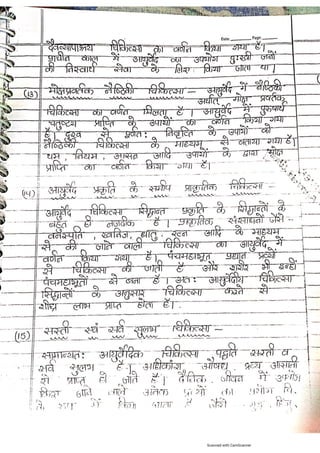 Date Page
दैवव्यपाश्रय चिकित्सा का वर्णन किया गया है।
प्राचीन काल में आयुर्वेद का उपयोग दुःखी जनों
की निस्वार्थ सेवा के लिए किया जाता था।
(13) मोक्षप्रवर्तक नैष्ठिकी चिकित्सा - आयुर्वेद में नैष्ठिकी
अर्थात् मोक्ष प्रवर्तक
चिकित्सा का वर्णन मिलता है। आयुर्वेद में पुरुषार्थ
चतुष्टय प्राप्ति के उपायों का वर्णन किया गया
है। दुःख से निवृत्ति के उपायों को
नैष्ठिकी चिकित्सा के माध्यम से बताया गया है।
यम, नियम, आसन आदि उपायों के द्वारा मोक्ष
प्राप्ति का वर्णन किया गया है।
(14) आयुर्वेद प्रकृति के समीप प्राकृतिक चिकित्सा -
आयुर्वेद चिकित्सा सिद्धान्त प्रकृति के सिद्धान्तों के
बहुत ही नजदीक है। प्राकृतिक संसाधनों जैसे -
वनस्पति, खनिज, धातु, रत्न आदि के माध्यम
से की जाने वाली चिकित्सा का आयुर्वेद में
वर्णन किया गया है। पंचमहाभूत प्रधान द्रव्यों
से चिकित्सा की जाती है और शरीर भी इन्हीं
पंचमहाभूतों से बना है। अतः आयुर्वेदीय चिकित्सा
सिद्धान्तों के अनुसार चिकित्सा करने से
शीघ्र लाभ प्राप्त होता है।
(15) सस्ती एवं सर्व सुलभ चिकित्सा -
सामान्यतः आयुर्वेदिक चिकित्सा पद्धति सस्ती व
सर्व सुलभ है। अधिकांश औषध द्रव्य आसानी
से प्राप्त हो जाते है। दैनिक जीवन में उपयोग
किया जाने वाले अनेक द्रव्यों का प्रयोग
के रूप में किया जाता है जैसे
Scanned with CamScanner